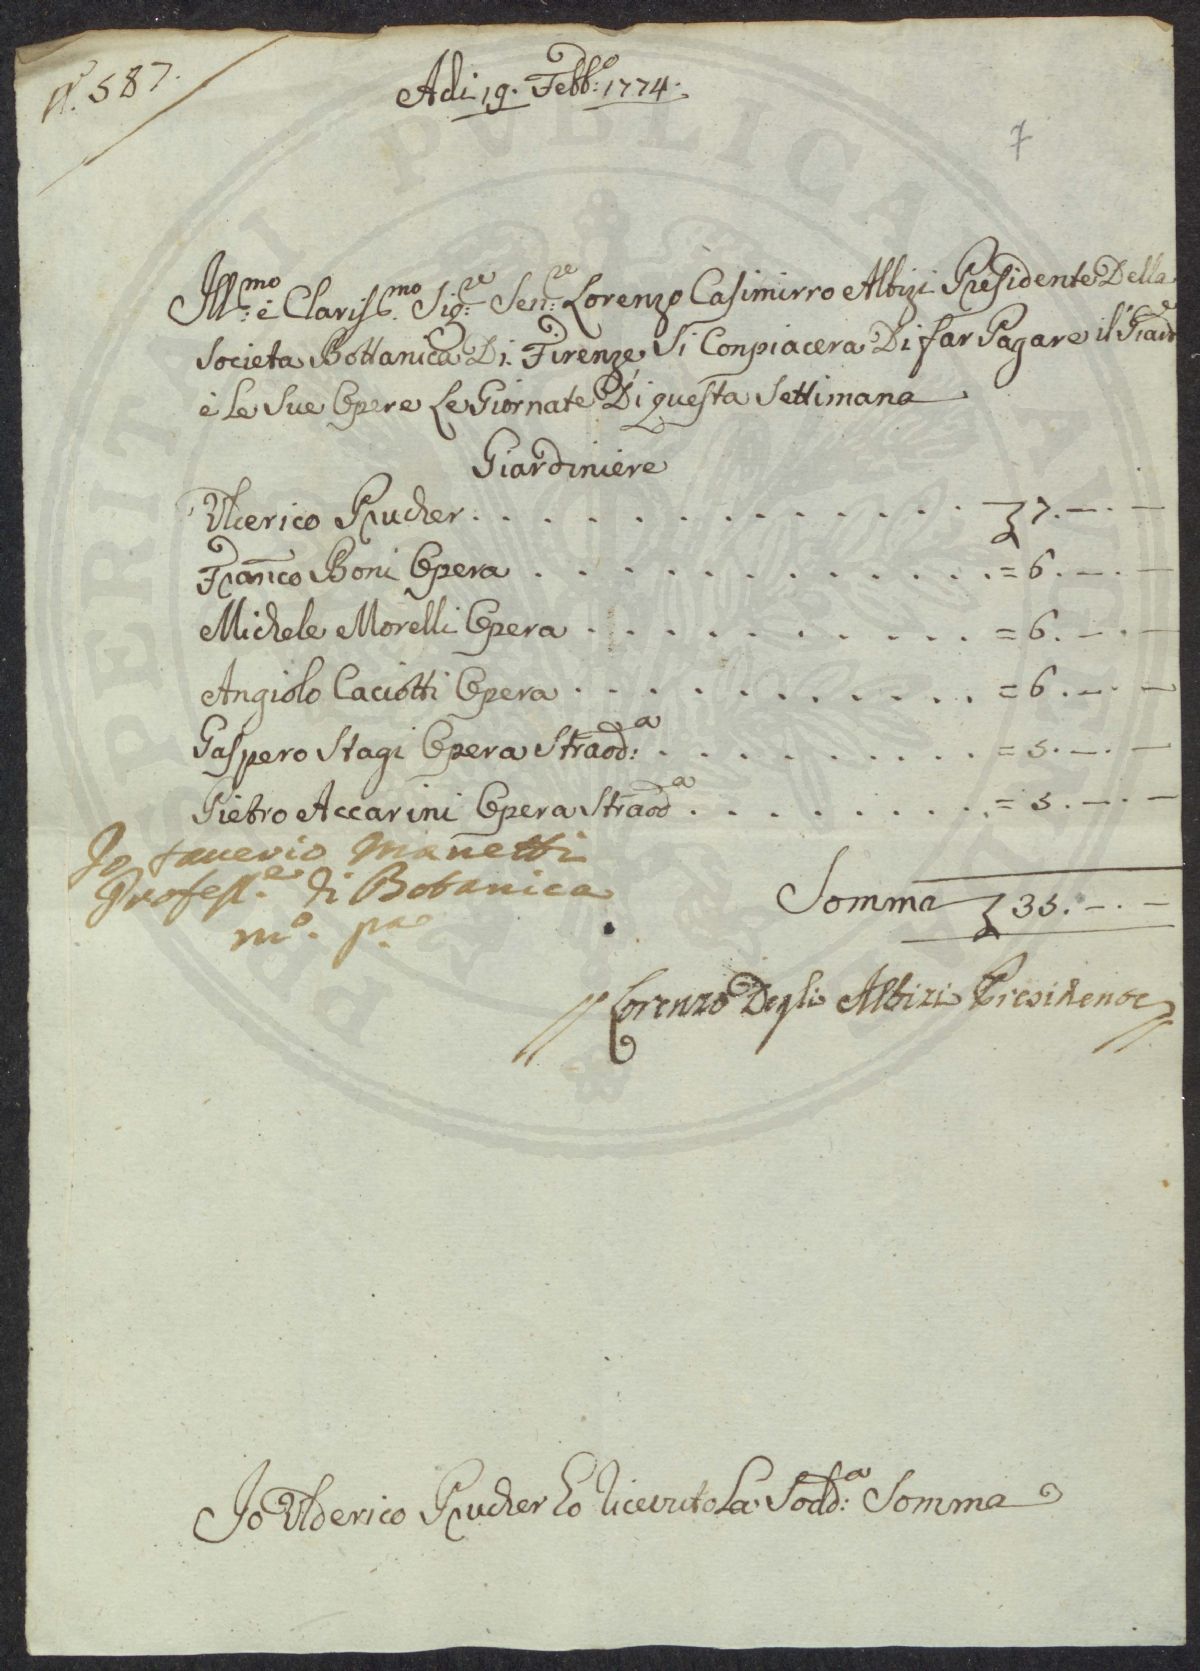 N.° 587.
Adi 19. Febb.° 1774.
7
Ill.mo e Clariss.mo Sig.re Sen.re Lorenzo Casimirro Albizi Presidente Della
Societa Bottanica Di Firenze, Si Conpiacera Di far Pagare il Giard.e
è Le Sue Opere Le Giornate Di questa Settimana
Giardiniere
Ulderico Prucher . . . . . . . . . . . . . . 7. —. —
Fran.co Boni Opera . . . . . . . . . . . . . = 6. —. —
Michele Morelli Opera . . . . . . . . . . . = 6. —. —
Angiolo Caciotti Opera . . . . . . . . . . . = 6. —. —
Gaspero Stagi Opera Straod:a . . . . . . . . . = 5. —. —
Pietro Accarini Opera Straod.a . . . . . . . . = 5. —. —
Io Saverio Manetti
Profess.e di Botanica
m.o p.a
Somma 35. —. —
Lorenzo Degli Albizi Presidente
Io Ulderico Prucher ho Ricevuto La Sodd:a Somma